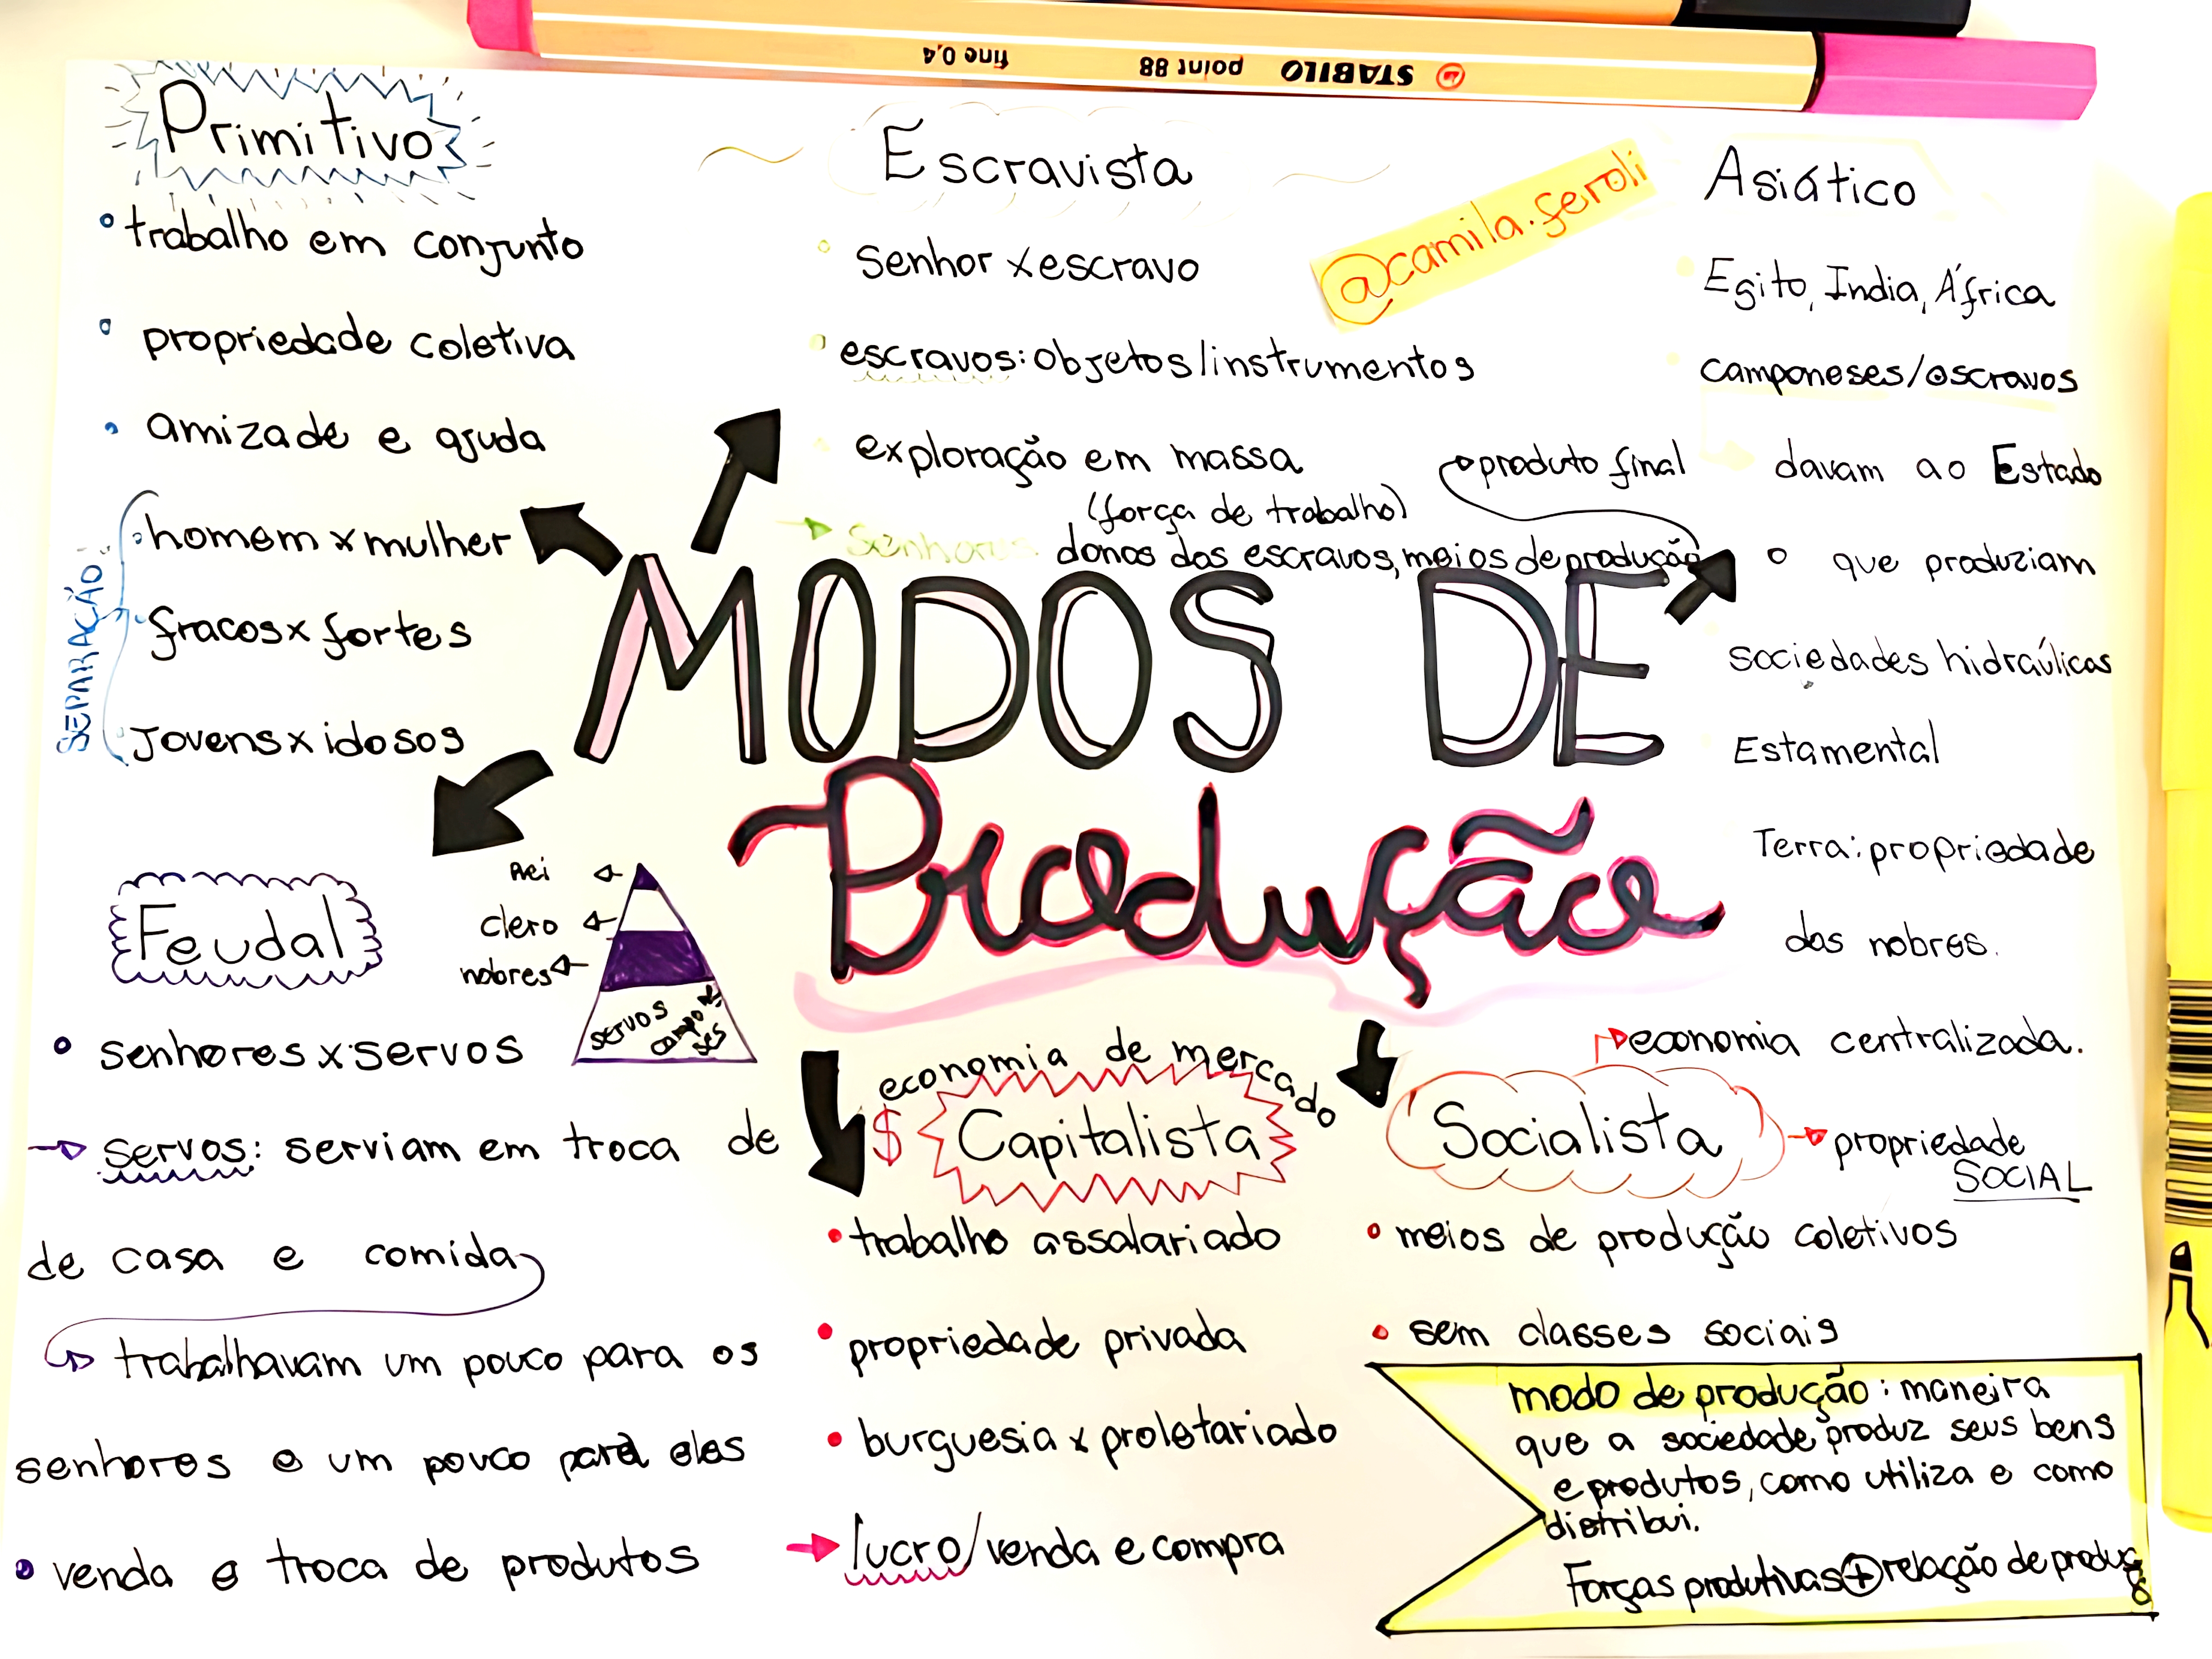 STABILO point 88 fine 0,4
Primitivo
trabalho em conjunto
propriedade coletiva
amizade e ajuda
SEPARAÇÃO:
homem x mulher
fracos x fortes
jovens x idosos
Escravista
senhor x escravo
escravos: objetos/instrumentos
exploração em massa
(força de trabalho)
Senhores: donos dos escravos, meios de produção
produto final
@camila.feroli
Asiático
Egito, India, África
camponeses/escravos
davam ao Estado
o que produziam
sociedades hidraúlicas
Estamental
Terra: propriedade
dos nobres.
MODOS DE
Produção
Feudal
Rei
clero
nobres
servos
campo
ses
senhores x servos
servos: serviam em troca de
de casa e comida
trabalhavam um pouco para os
senhores e um pouco para eles
venda e troca de produtos
economia de mercado
$ Capitalista
trabalho assalariado
propriedade privada
burguesia x proletariado
lucro/venda e compra
economia centralizada.
Socialista
propriedade
SOCIAL
meios de produção coletivos
sem classes sociais
modo de produção: maneira
que a sociedade produz seus bens
e produtos, como utiliza e como
distribui.
Forças produtivas + relação de produção